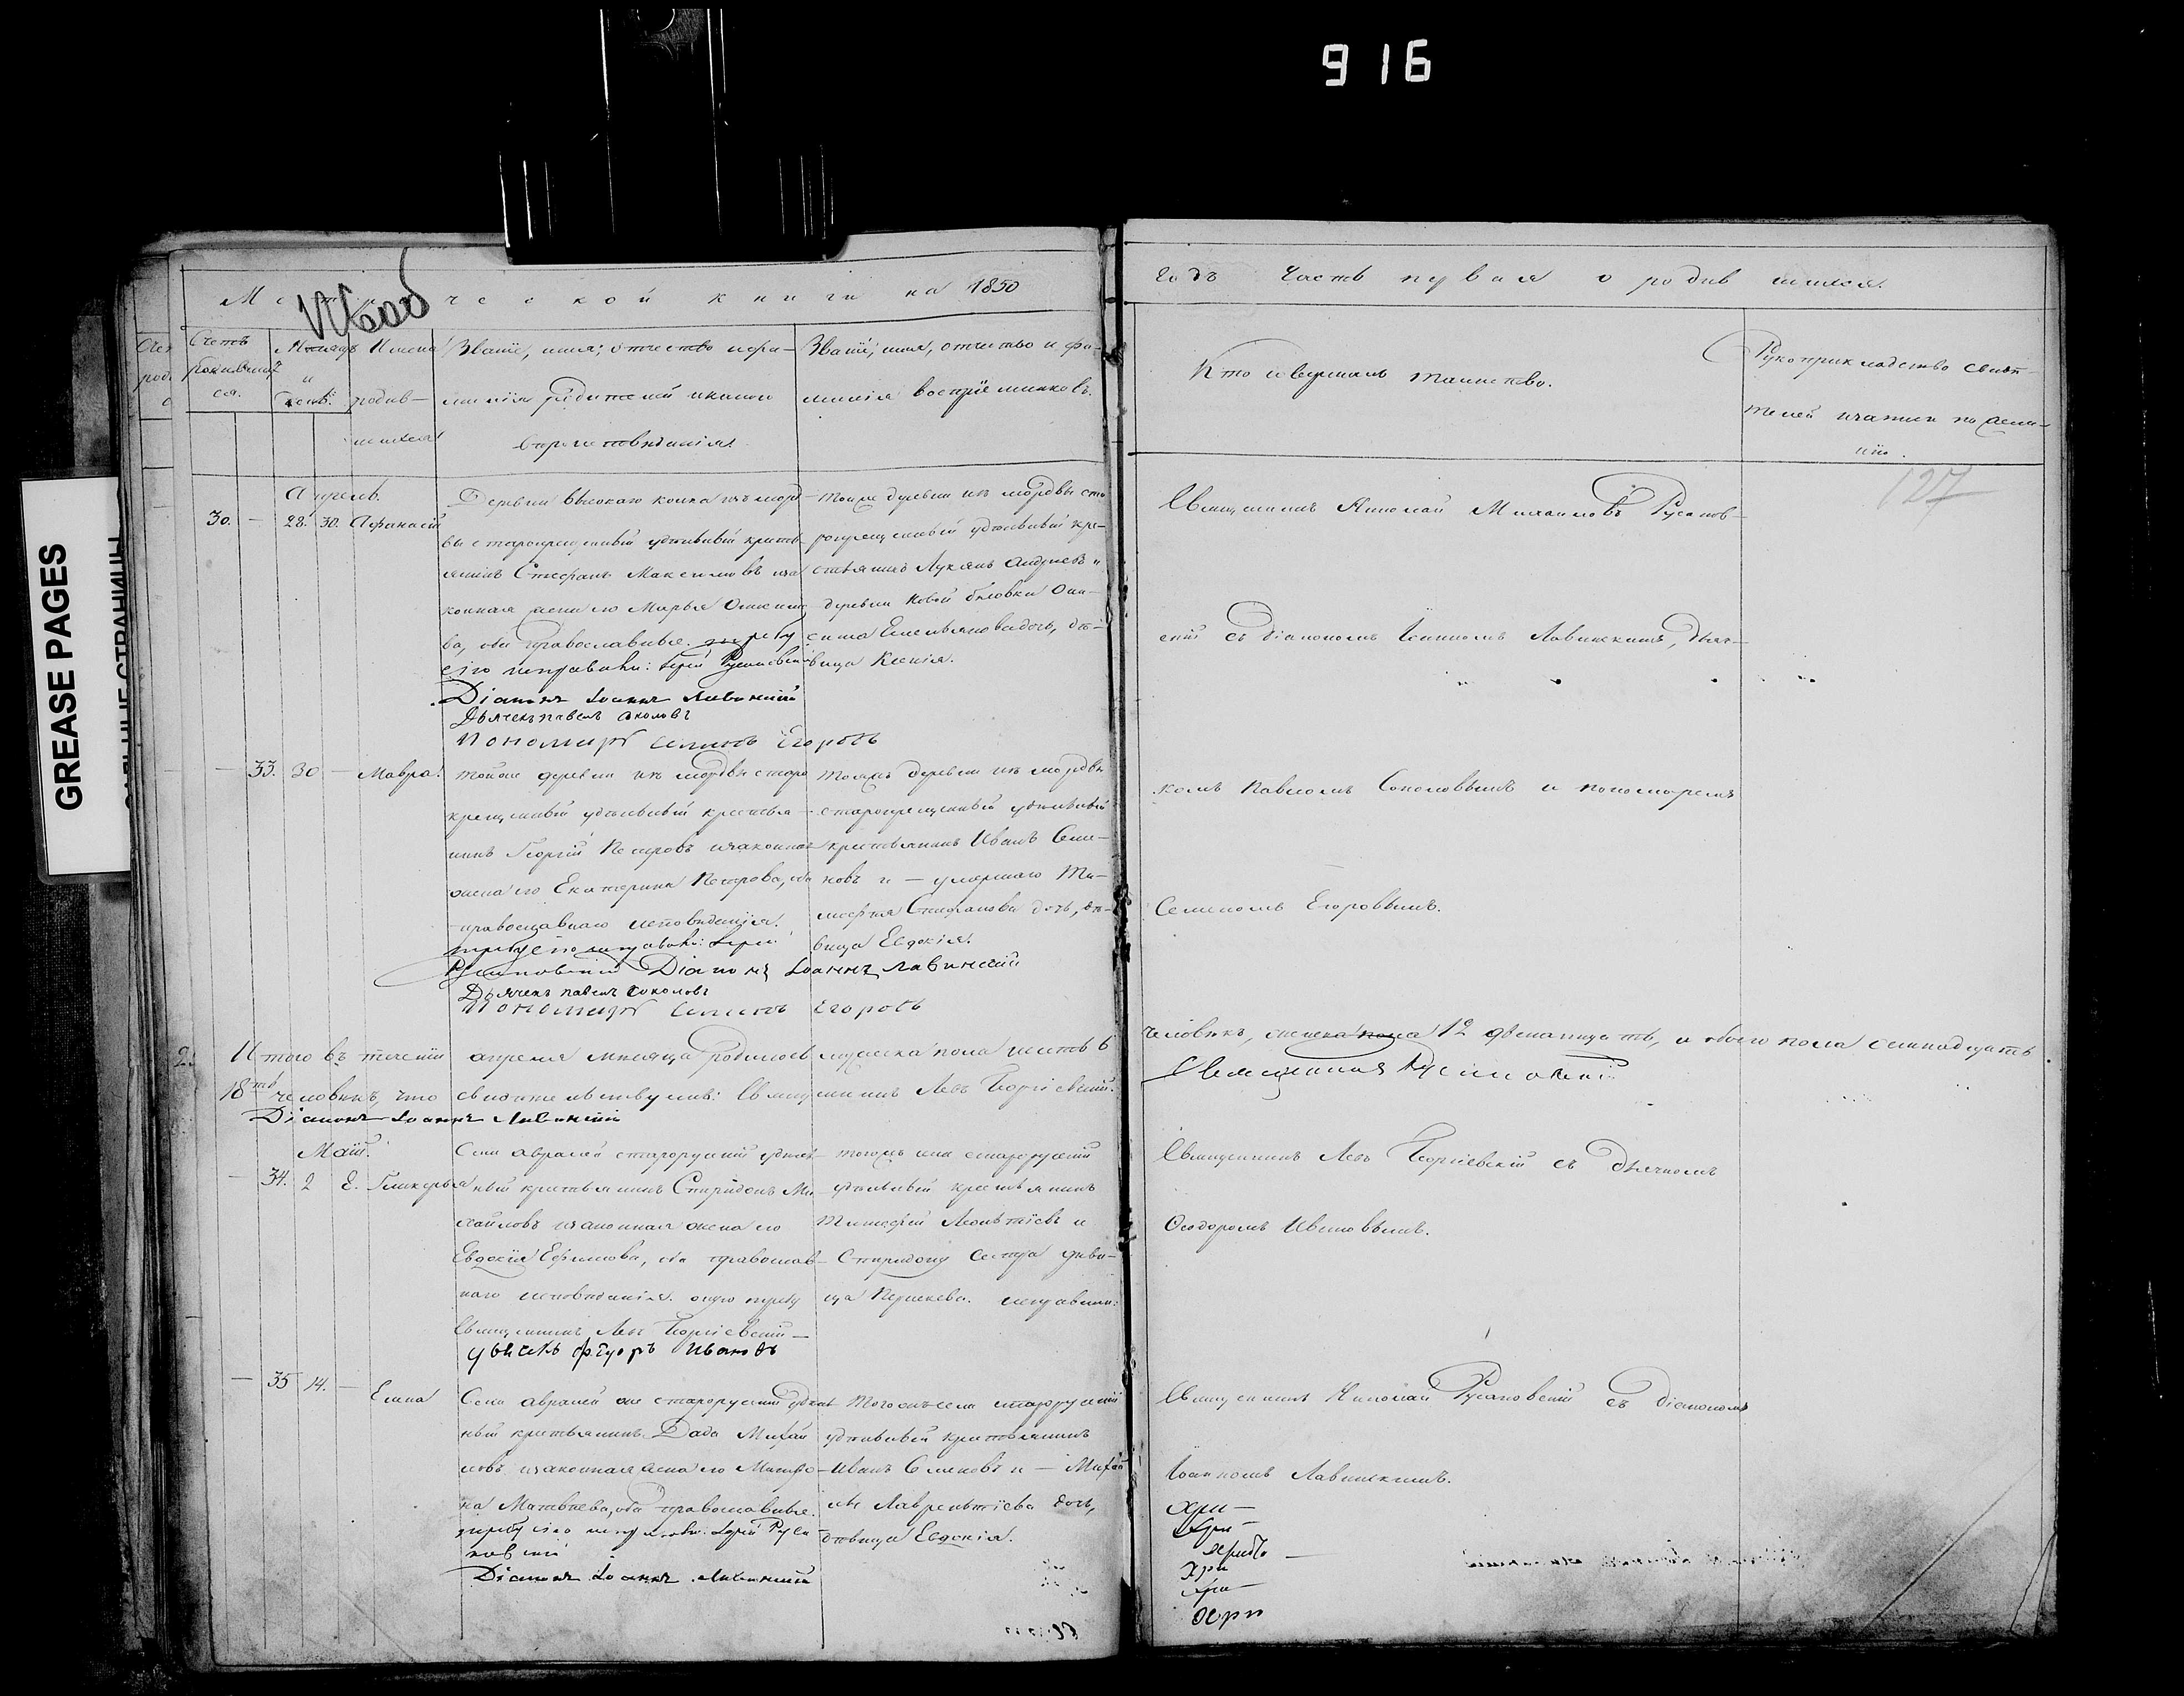 916
GREASE PAGES
Метрической книги на 1850
годъ Часть первая о родившихся.
Счетъ родившихся.
Мѣсяцъ и день.
Имена родившихся.
Званіе, имя, отчество и фамилія родителей и какого вѣроисповѣданія.
Званіе, имя, отчество и фамилія воспріемниковъ.
Кто совершалъ таинство.
Рукоприкладство свидѣтелей записи по желанію.
127
Апрель.
30. — 28. 30. Афанасій
Деревни Высокаго колка изъ морд-
вы старокрещеный удѣльный кресть-
янинъ Стефанъ Максимовъ и за-
конная жена его Марья
ва, оба православные. требу
сію исправили: Іерей Русановскій
Діаконъ Іоаннъ Лавинскій
Дьячекъ Павелъ Соколовъ
Пономарь Семенъ Егоровъ
тойже деревни изъ мордвы ста-
рокрещеный удѣльный кре-
стьянинъ Лукянъ Андреевъ и
деревни Новой бѣловки Они-
сима Емельянова дочь, дѣ-
вица Ксенія.
Священникъ Николай Михаиловъ Русанов-
скій съ діакономъ Іоанномъ Лавинскимъ, дьяч-
комъ Павломъ Соколовымъ и пономаремъ
Семеномъ Егоровымъ.
— 33. 30 — Мавра.
тойже деревни изъ мордвы старо
крещеный удѣльный крестья-
нинъ Георгій Петровъ и законная
жена его Екатерина Петрова, оба
православнаго исповѣданія.
требу сію исправили: Іерей
Русановскій Діаконъ Іоаннъ Лавинскій
Дьячекъ Павелъ Соколовъ
Пономарь Семенъ Егоровъ
тояжъ деревни изъ мордвы
старокрещеный удѣльный
крестьянинъ Иванъ Семе-
новъ и — умершаго Ти-
мофея Стефанова дочь, дѣ-
вица Евдокія.
Итого въ теченіи апреля мѣсяца родилось мужеска пола шесть 6
человѣкъ, женска пола 12 двенатцать, и обоего пола семнадцать
18ть человѣкъ, что свидѣтельствуемъ: Священникъ Левъ Георгіевскій.
Священникъ Русановскій
Діаконъ Іоаннъ Лавинскій
Маій.
— 34. 2 8. Гликерья
Села авралей старорусскій удѣль-
ный крестьянинъ Спиридонъ Ми-
хайловъ и законная жена его
Евдокія Ефимова, оба православ-
наго исповѣданія. оную требу
Священникъ Левъ Георгіевскій
Дьячекъ Фэдоръ Ивановъ
тогожъ села старорусскій
удѣльный крестьянинъ
Тимофей Леонтіевъ и
Спиридону сестра деви-
ца Параскева. исправили:
Священникъ Левъ Георгіевскій съ дьячкомъ
Ѳеодоромъ Ивановымъ.
— 35 14. — Елена
Села авралей же старорусскій удѣль-
ный крестьянинъ Дада Михай
ловъ и законная жена его Матро-
на Матвѣева, оба православные.
требу сію исправили: Іерей Руса-
новскій
Діаконъ Іоаннъ Лавинскій
Тогожъ села старорусскій
удѣльный крестьянинъ
Иванъ Семеновъ и — Михай
лы Лаврентіева дочь,
дѣвица Евдокія.
Священникъ Николай Русановскій съ діакономъ
Іоанномъ Лавинскимъ.